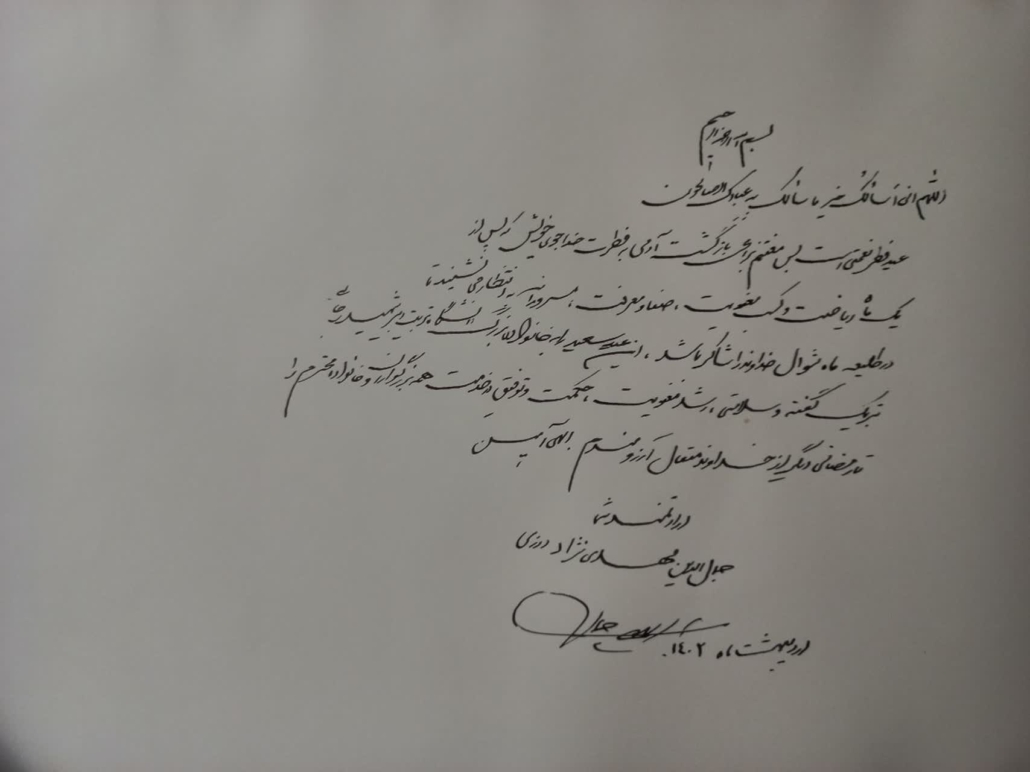 بسم الله الرحمن الرحیم
اللّهُمَ انی اَسألُکَ خیر ما سألک به عبادک الصالحون
عید فطر نعمتی است بس مغتنم برای بازگشت آدمی به فطرت خداجوی خویش که پس از
یک ماه ریاضت و کسب معنویت، صفا و معرفت، مسرورانه به انتظار می نشیند تا
در طلیعه ماه شوال خداوند را شاکر باشد، این عید سعید را به خانواده بزرگ دانشگاه تربیت دبیر شهید رجایی
تبریک گفته و سلامتی، رشد معنویت، حکمت و توفیق خدمت همه بزرگواران و خانواده محترم را
تا رمضانی دیگر از خداوند متعال آرزومندم الهی آمین
ارادتمند شما
جلال الدین مهدی نژاد درزی
اردیبهشت ماه ۱۴۰۲